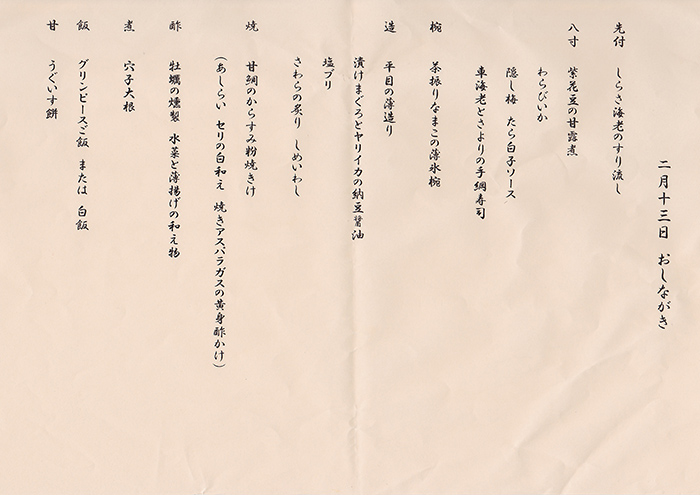 二月十三日 おしながき
先付 しらさ海老のすり流し
八寸 紫花豆の甘露煮
わらびいか
隠し梅 たら白子ソース
車海老とさよりの手綱寿司
椀 茶振りなまこの薄氷椀
造 平目の薄造り
漬けまぐろとヤリイカの納豆醤油
塩ブリ
さわらの炙り しめいわし
焼 甘鯛のからすみ粉焼きけ
(あしらい セリの白和え 焼きアスパラガスの黄身酢かけ)
酢 牡蠣の燻製 水菜と薄揚げの和え物
煮 穴子大根
飯 グリンピースご飯 または 白飯
甘 うぐいす餅